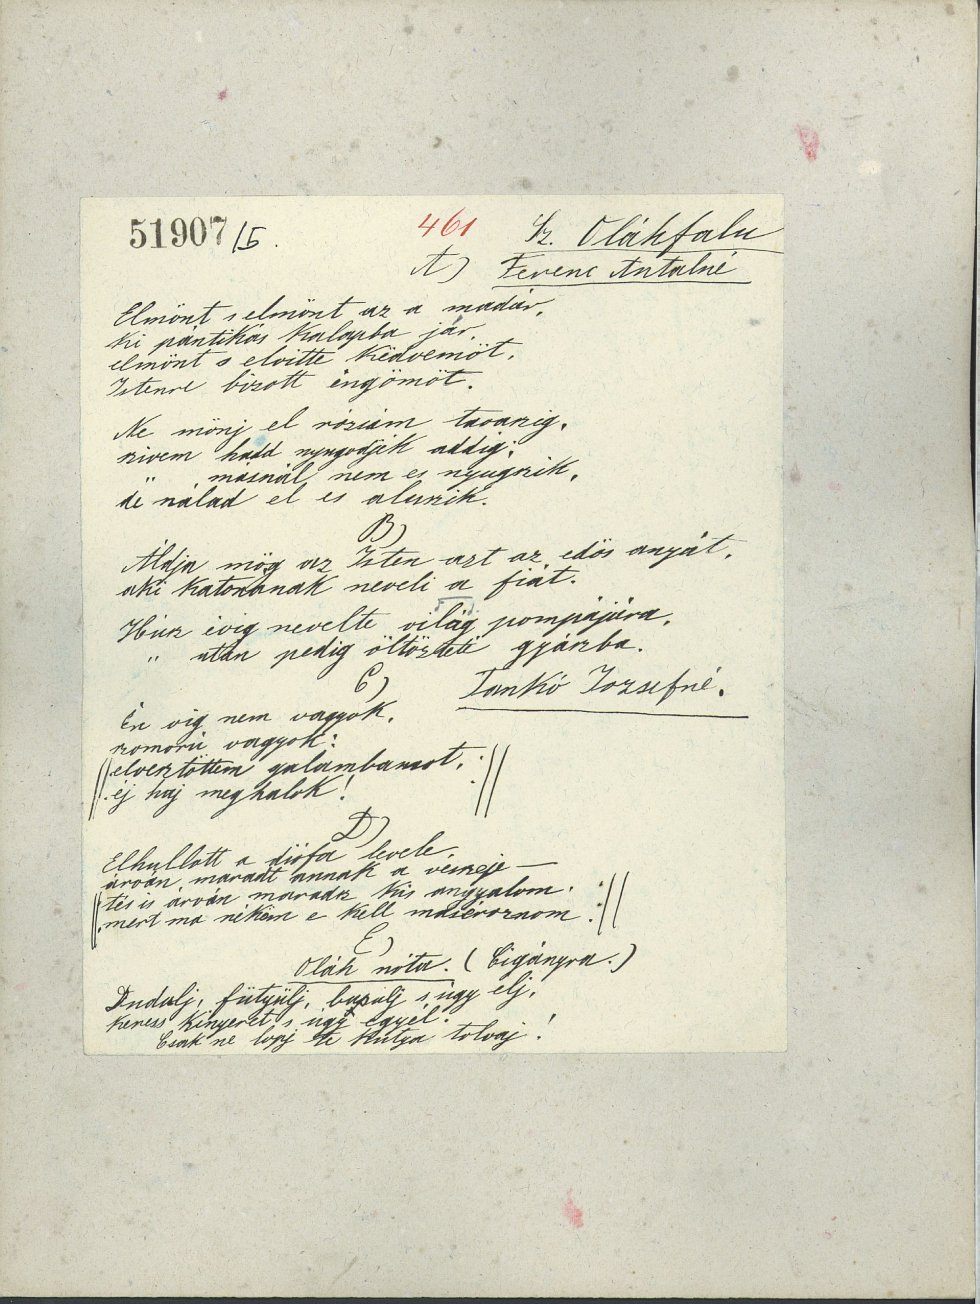 51907/5.
461
Sz. Oláhfalu
A) Ferenc Antalné
Elmönt s elmönt az a madár,
ki pántikás kalapba jár,
elmönt s elvitte kedvemöt,
Istenre bizott engömöt.
Ne mönj el rózsám tavaszig,
szivem hadd nyugodjék addig;
" másnál nem es nyugszik,
de nálad el es aluszik.
B)
Áldja mög az Isten azt az edös anyát,
aki katonának neveli a fiát.
Húsz évig nevelte világ pompájára,
" után pedig öltözteti gyászba.
C) Tankó Józsefné.
Én vig nem vagyok,
szomorú vagyok:
elvesztöttem galambamot,
éj haj meghalok!
D)
Elhullott a diófa levele,
árván maradt annak a veszeje —
tés is árván maradsz kis angyalom.
mert ma nékem e kell maséroznom.
E)
Oláh nóta. (Cigányra.)
Dudulj, fütyülj, busulj s úgy élj,
keress kenyeret s úgy egyél.
Csak ne lopj te kutya tolvaj!